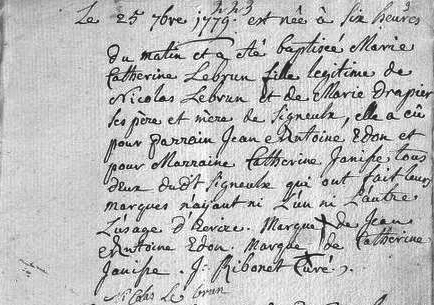 Le 25 7bre 1779. est née à six heures
du matin et a été baptisée Marie
Catherine Lebrun fille legitime de
Nicolas Lebrun et de Marie Drapier
ses père et mere de Signeulx, elle a eû
pour parrain Jean Antoine Edon et
pour Marraine Catherine Janipe tous
deux dudt Signeulx qui ont fait leurs
marques n'ayant ni l'un ni l'autre
l'usage d'Ecrire. Marque de Jean
Antoine Edon. Marque de Catherine
Janipe. J. Ribonet Curé
Nicolas Le brun